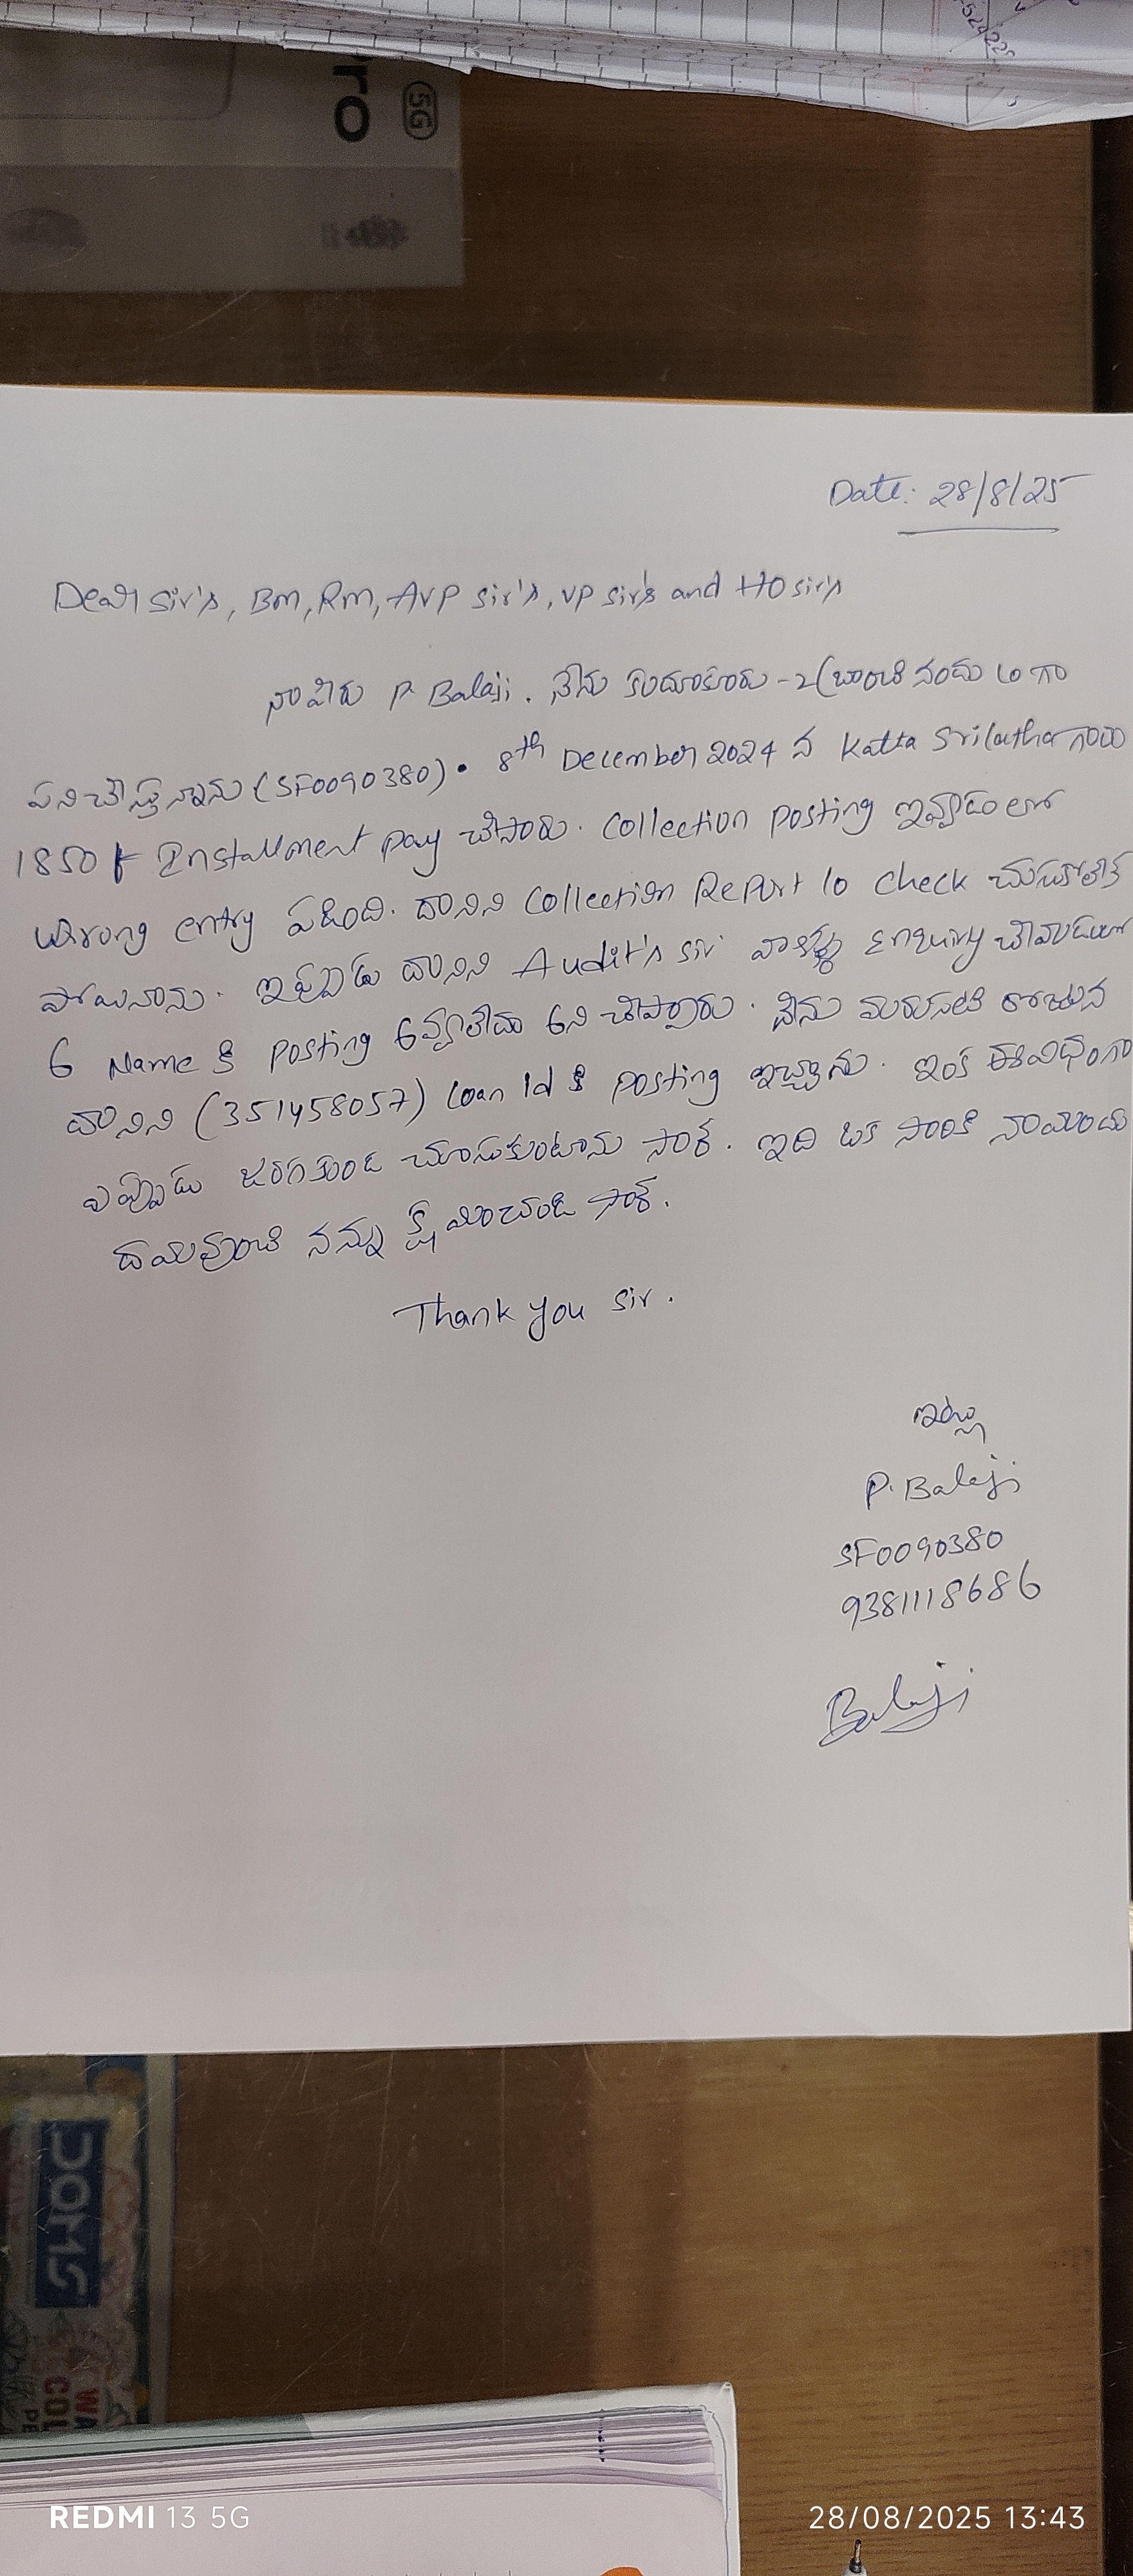 524225
ro
5G
Date: 28/8/25
Dear Sir's, Bm, Rm, AVP Sir's, VP Sir's and HO sir's
నా పేరు P. Balaji. నేను కందుకూరు -2 బ్రాంచి నందు LO గా
పనిచేస్తున్నాను (SF0090380). 8th December 2024 న Katta Srilatha గారు
1850 Installment pay చేసారు. Collection posting ఇవ్వడంలో
wrong entry పడింది. దానిని Collection Report lo check చుసుకోలేక
పోయినాను. ఇప్పుడు దానిని Audit's sir వాళ్ళు Enquiry చేయడంలో
6 Name కి posting ఇవ్వలేదా అని చెప్పారు. నేను మరుసటి రోజున
దానిని (351458057) Loan Id కి posting ఇచ్చాను. ఇంక ఈవిధంగా
ఎప్పుడు జరగకుండ చూసుకుంటాను సార్. ఇది ఒక సారికి నాయందు
దయవుంచి నన్ను క్షమించండి సార్.
Thank you sir.
ఇట్లు
P. Balaji
SF0090380
9381118686
Balaji
DOMS
WA
COL
PE
REDMI 13 5G
28/08/2025 13:43